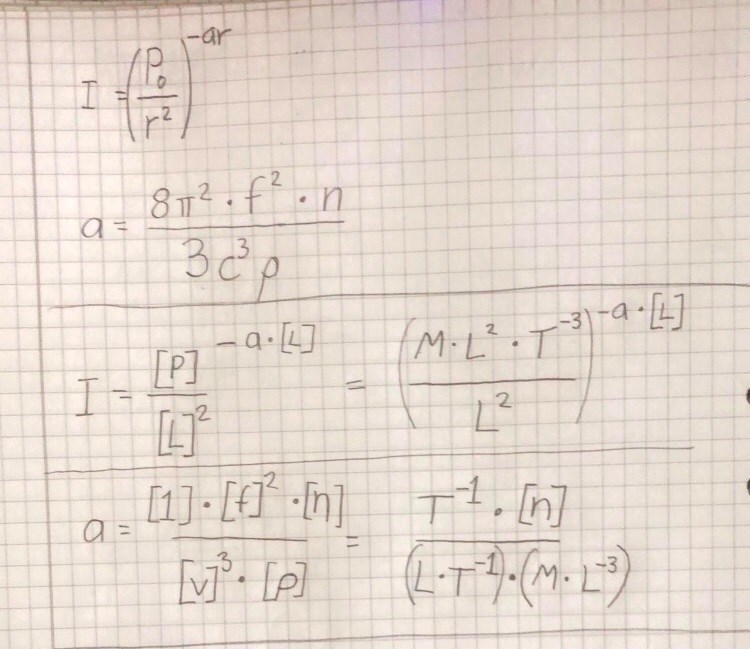 I = (P₀/r²)^(-ar)
a = (8π² · f² · n)/(3c³ρ)
I = [P]/[L]² ^(-a·[L]) = ((M·L² · T⁻³)/L²)^(-a·[L])
a = ([1]·[f]² ·[η])/([v]³· [ρ]) = (T⁻¹ · [η])/((L·T⁻¹)·(M·L⁻³))